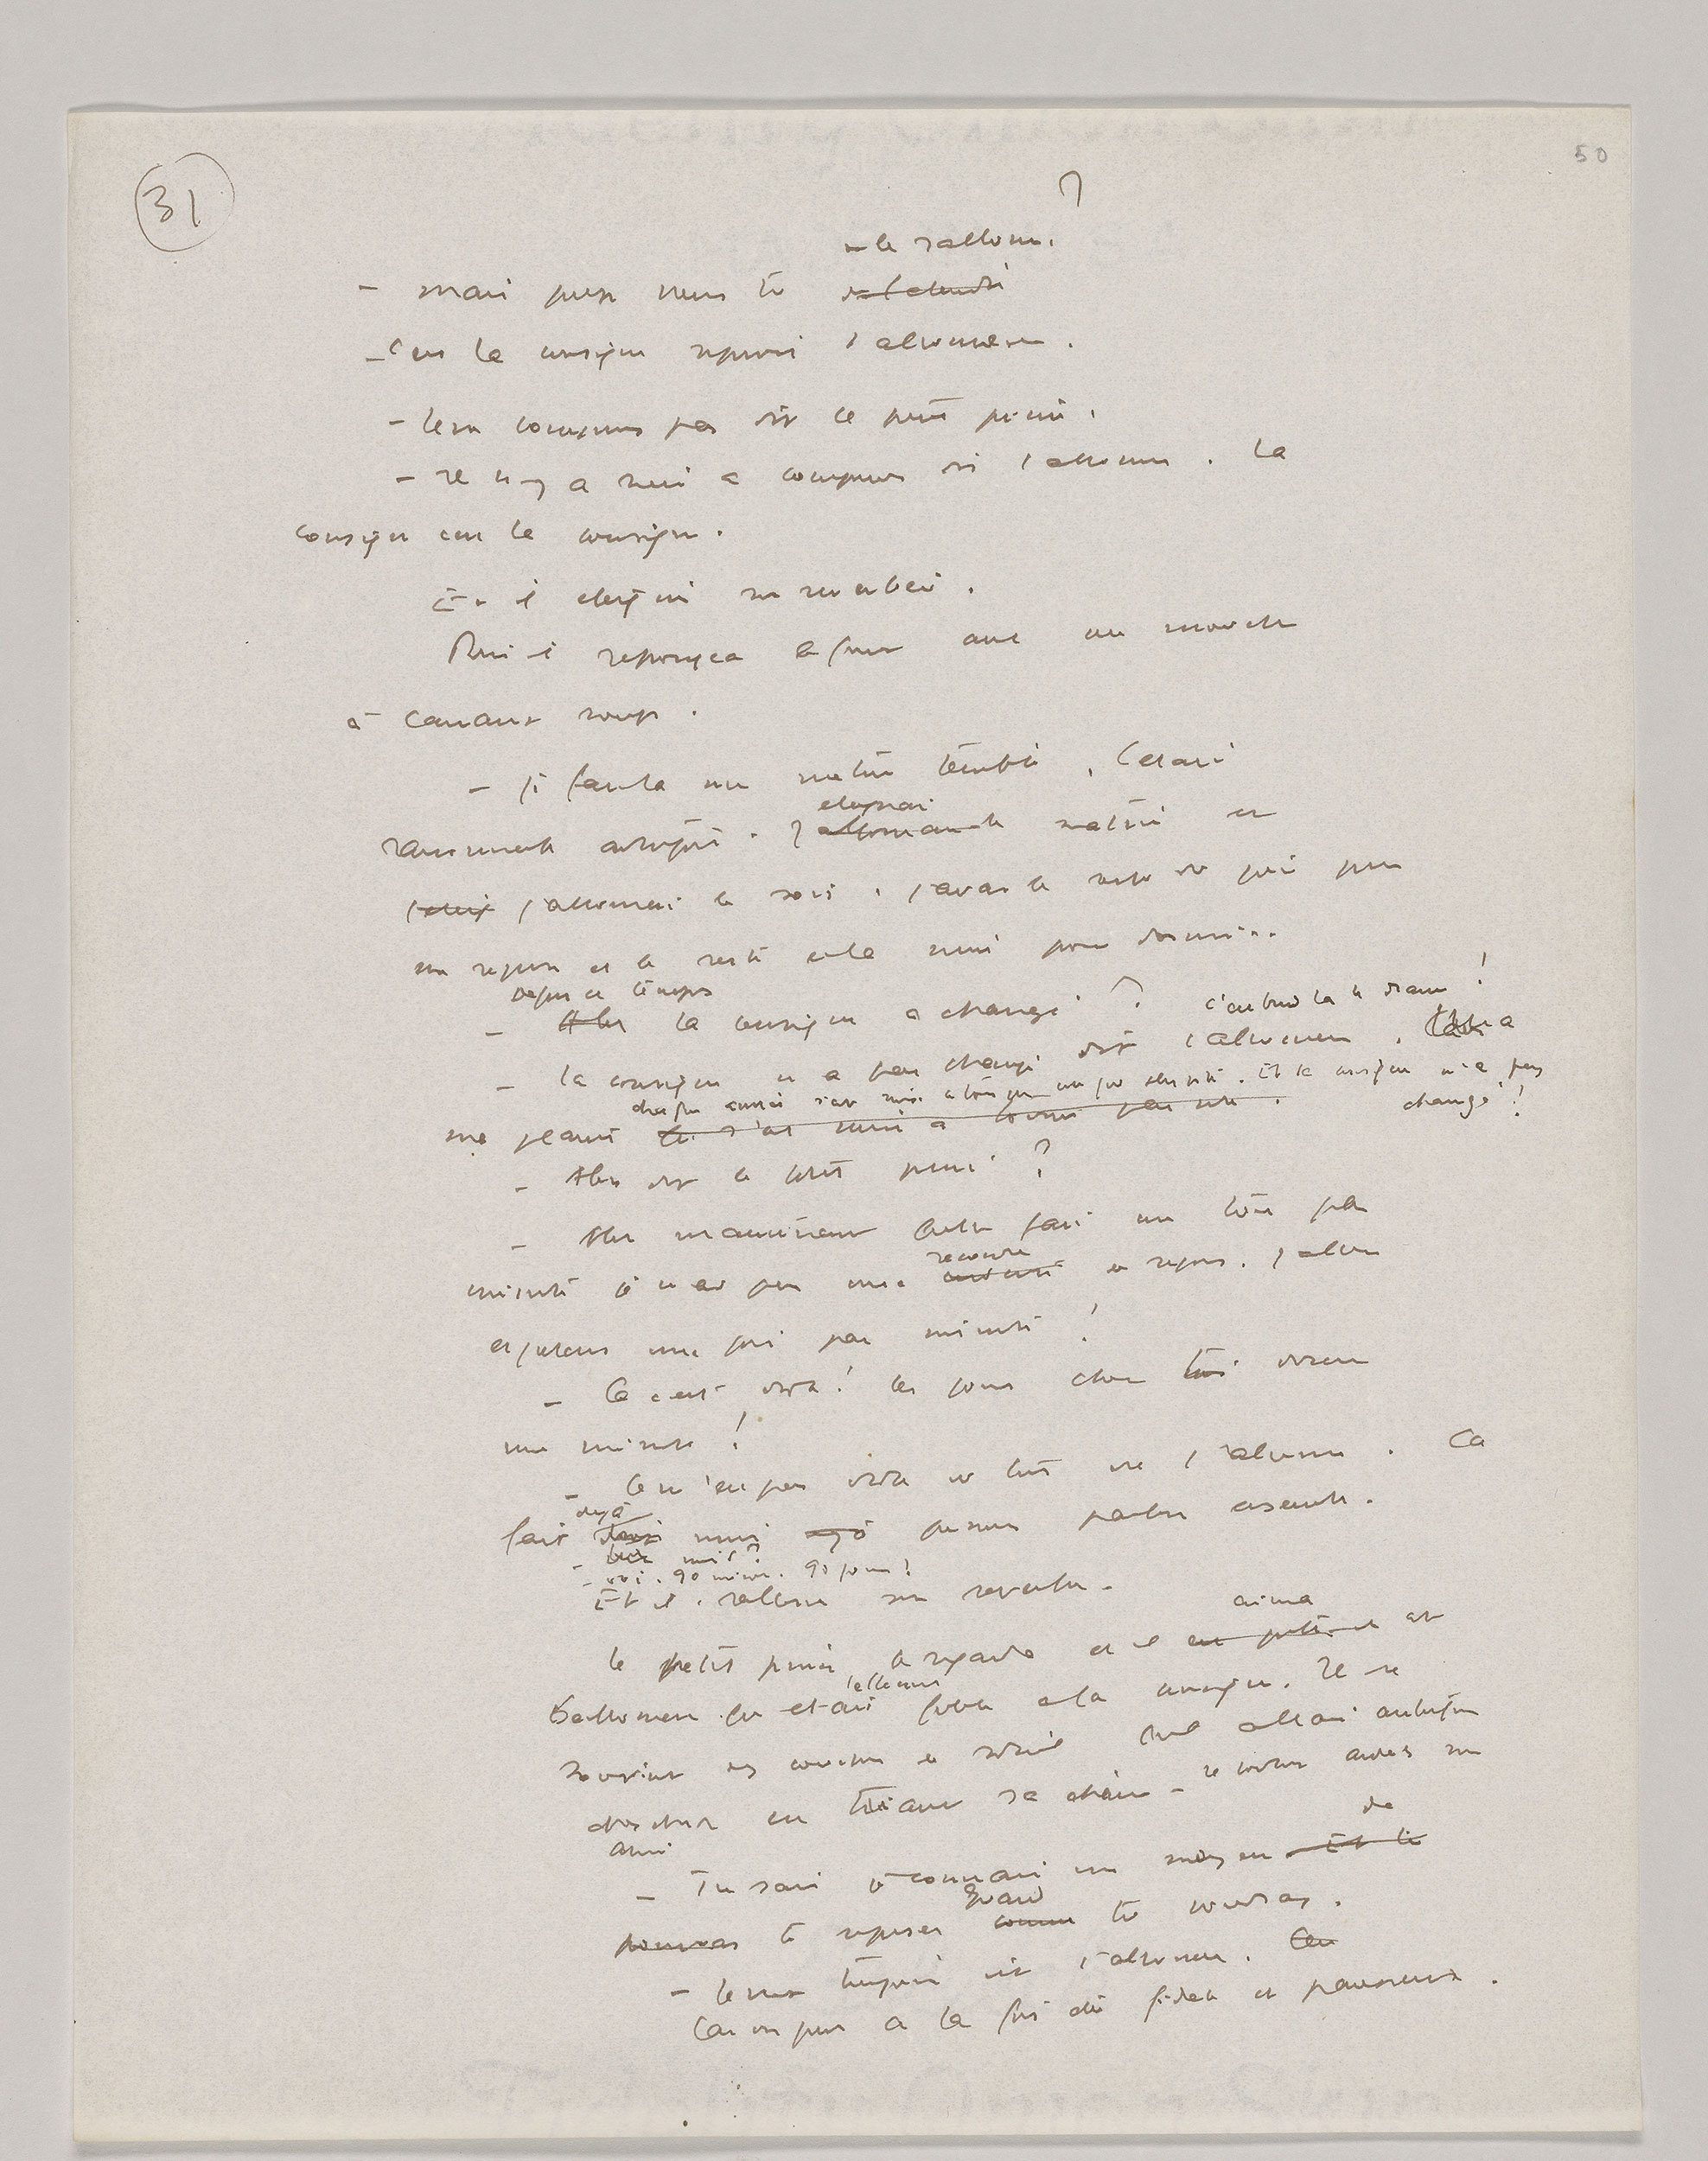 31
50
?
le rallumes
- mais pourquoi viens tu
- C'est la consigne répondit l'allumeur.
- Je ne comprends pas dit le petit prince.
- Il n'y a rien à comprendre dit l'allumeur. La
consigne c'est la consigne.
Et il éteignit son réverbère.
Puis il s'épongea le front avec un mouchoir
à carreaux rouges.
- Je fais là un métier terrible. C'était
raisonnable autrefois. J'
éteignais
matin et
j'allumais le soir. J'avais le reste du jour pour
me reposer et le reste de la nuit pour dormir...
Depuis ce temps
- la consigne a changé ? c'est bien là le drame !
- la consigne n'a pas changé dit l'allumeur. La
chaque année s'est mise à tourner un peu plus vite. Et la consigne n'a pas
ma planète
changé !
- Alors dit le petit prince ?
- Alors maintenant qu'elle fait un tour par
seconde
minute je n'ai plus une de repos. J'allume
et j'éteins une fois par minute !
- Ça c'est drôle ! les jours chez toi durent
une minute !
- Ce n'est pas drôle du tout dit l'allumeur. Ça
déjà
fait que nous parlons ensemble.
- mois ?
- oui. 90 minutes. 90 jours !
Et il ralluma son réverbère.
aima
le petit prince le regarda et il cet
tellement
allumeur qui était fidèle à la consigne. Il se
souvint des couchers de soleil qu'il allait autrefois
chercher en tirant sa chaise - il voulut aider son
ami
de
- Tu sais je connais un moyen
quand
te reposer tu voudras.
- Je veux toujours dit l'allumeur.
Car on peut à la fois être fidèle et paresseux.